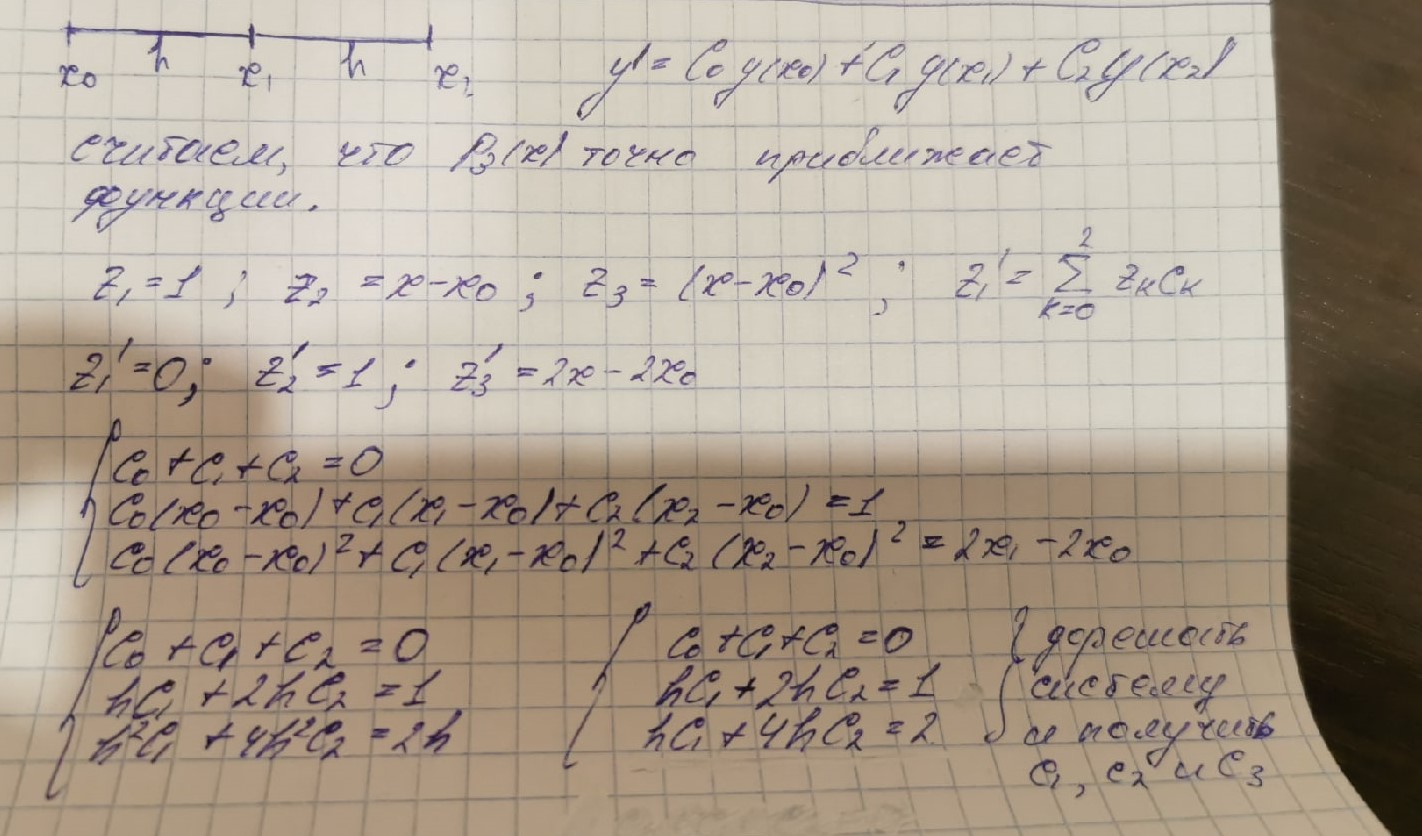 x₀ h x₁ h x₂
y' = C₀y(x₀) + C₁y(x₁) + C₂y(x₂)
считаем, что P₃(x) точно приближает
функции.
z₁ = 1 ; z₂ = x - x₀ ; z₃ = (x - x₀)² ; z₁' = ∑ₖ₌₀² zₖCₖ
z₁' = 0 ; z₂' = 1 ; z₃' = 2x - 2x₀
C₀ + C₁ + C₂ = 0
C₀(x₀ - x₀) + C₁(x₁ - x₀) + C₂(x₂ - x₀) = 1
C₀(x₀ - x₀)² + C₁(x₁ - x₀)² + C₂(x₂ - x₀)² = 2x₁ - 2x₀
C₀ + C₁ + C₂ = 0
hC₁ + 2hC₂ = 1
h²C₁ + 4h²C₂ = 2h
C₀ + C₁ + C₂ = 0
hC₁ + 2hC₂ = 1
hC₁ + 4hC₂ = 2
дорешать
систему
и получить
C₁, C₂ и C₃